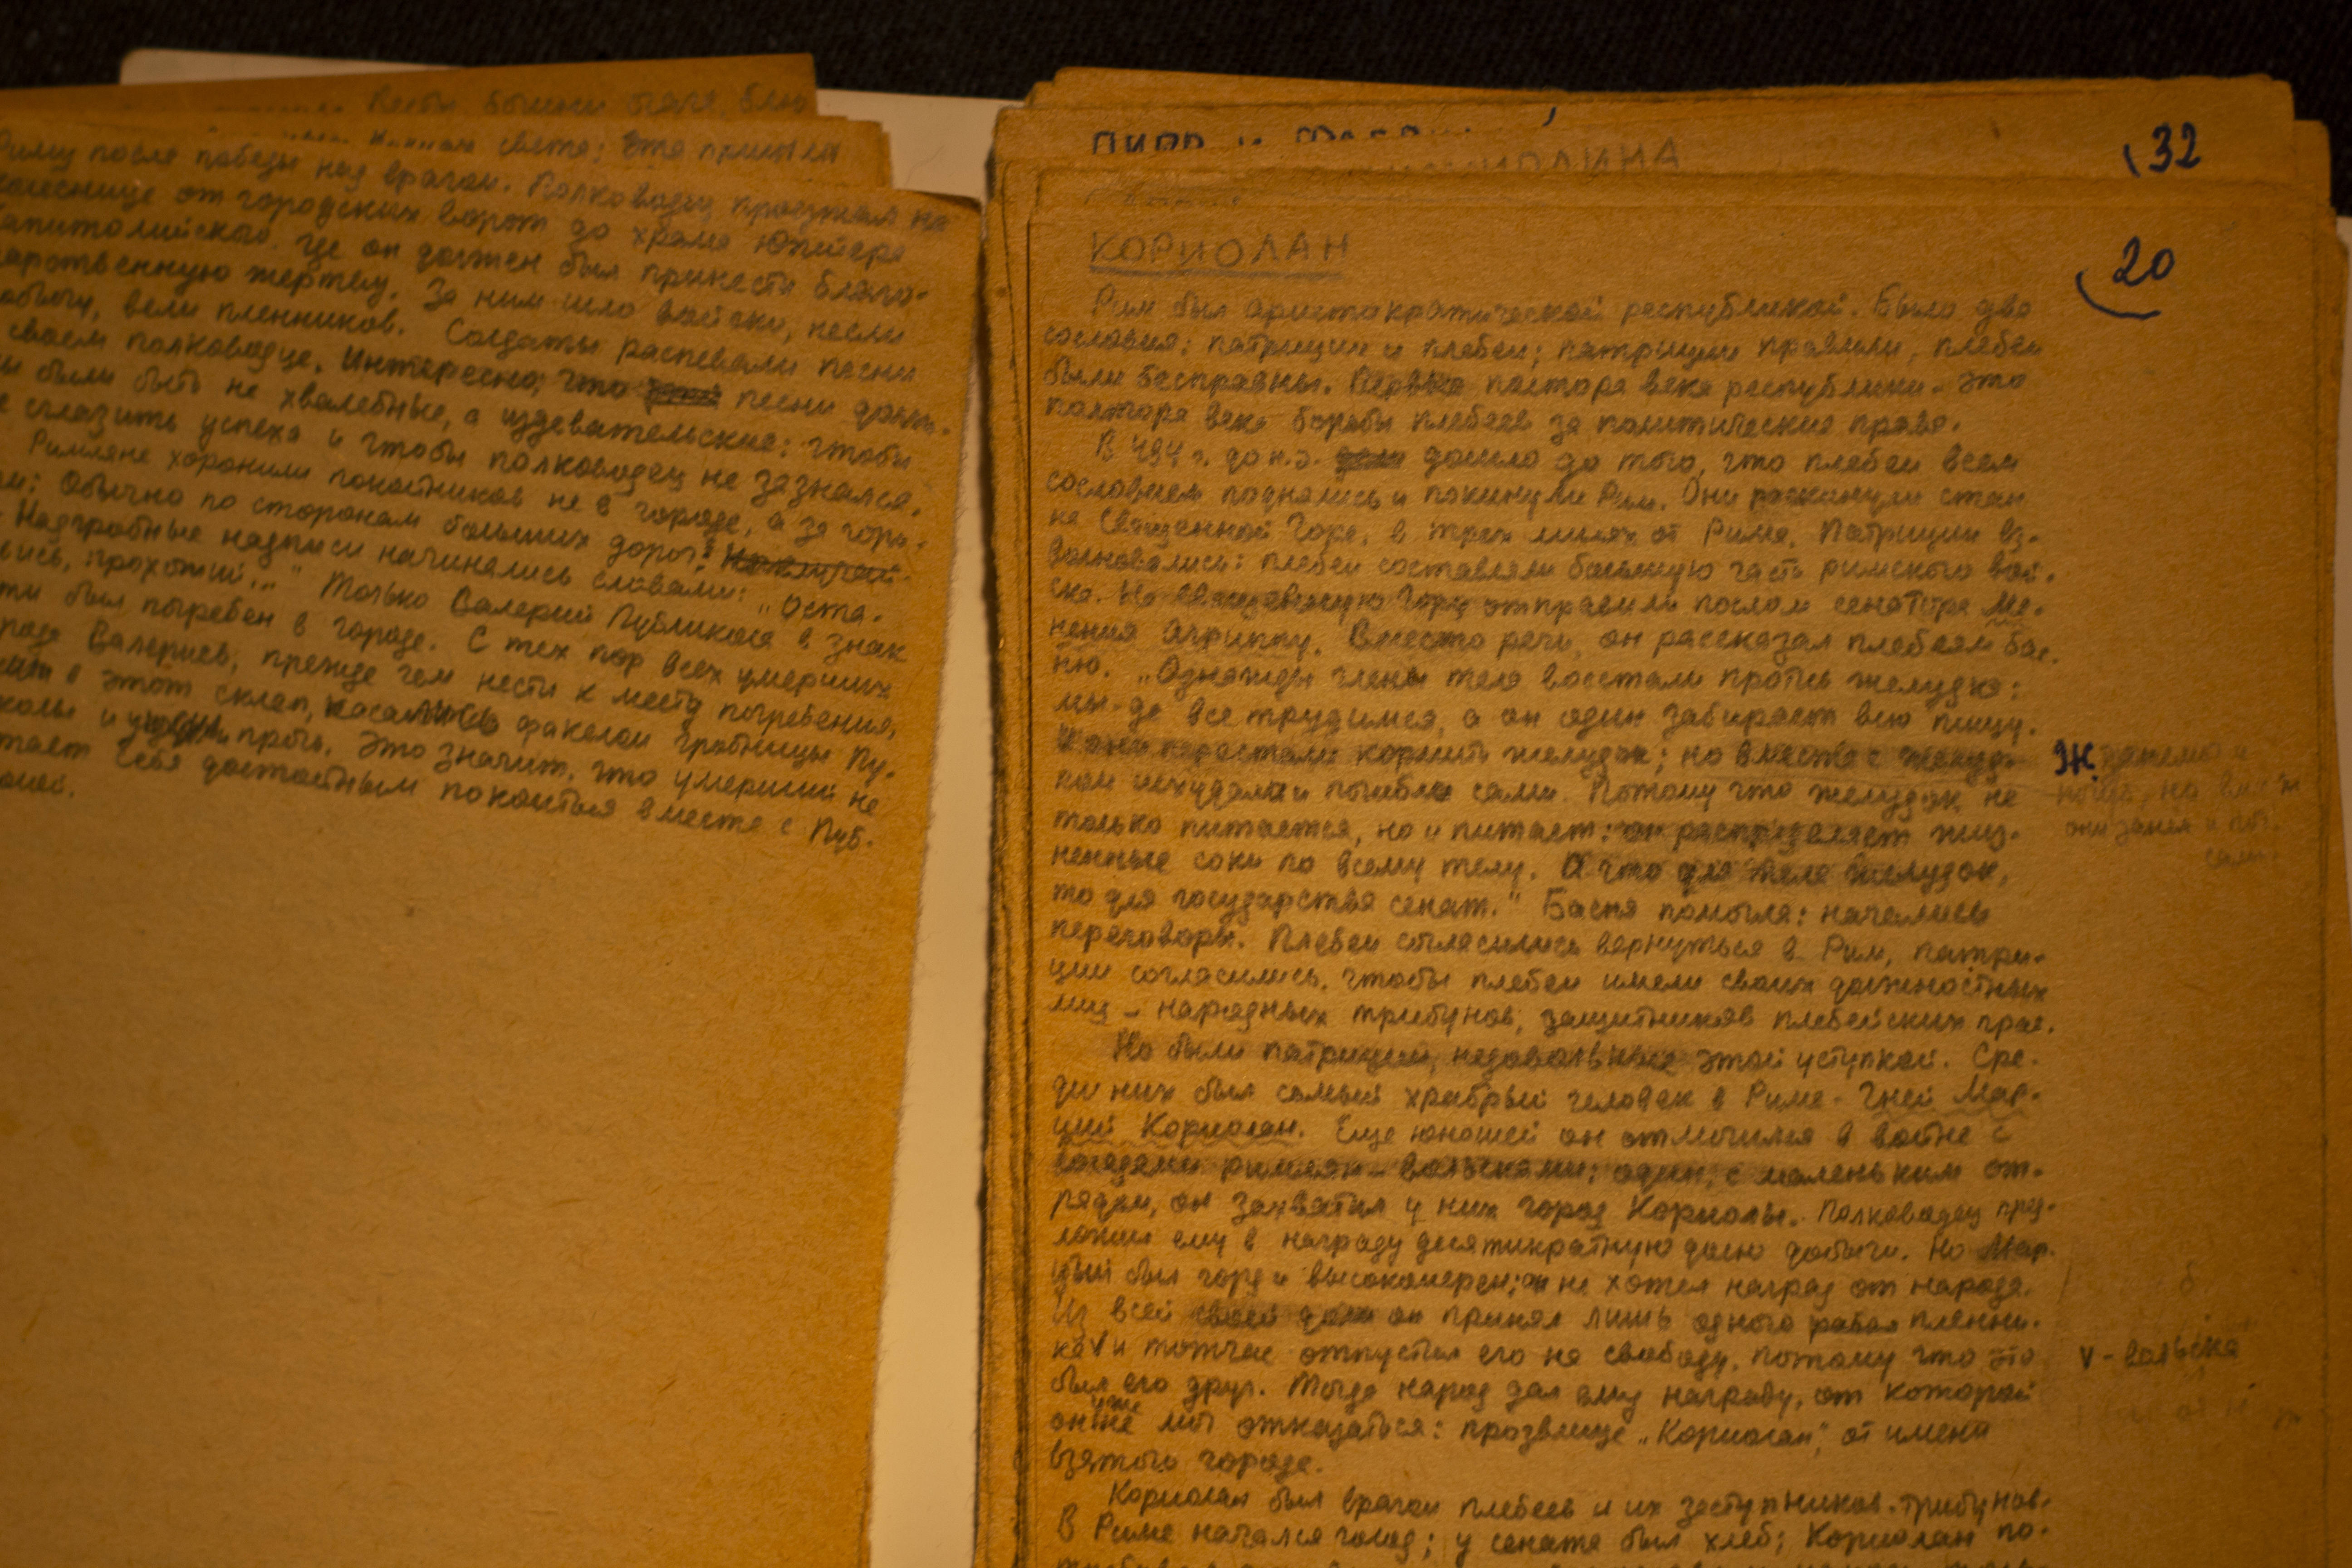 были тела, бла
света; эта
Риму после победы над врагом. Полководец проезжал на
колеснице от городских ворот до храма Юпитера
Капитолийского, где он должен был принести благо-
дарственную жертву. За ним шло войско, несли
добычу, вели пленников. Солдаты распевали песни
своем полководце. Интересно, что песни долж-
ны были быть не хвалебные, а издевательские: чтобы
не сглазить успеха и чтобы полководец не зазнался.
Римляне хоронили покойников не в городе, а за горо-
дом: обычно по сторонам больших дорог.
Надгробные надписи начинались словами: "Оста-
вись, прохожий..." Только Валерий Публикола в знак
был погребен в городе. С тех пор всех умерших
рода Валериев, прежде чем нести к месту погребения,
в этот склеп, касались факелом гробницы Пу-
колы и прочь. Это значит, что умерший не
тает себя достойным покоиться вместе с Пуб-
колой.
ПИРР И
32
20
КОРИОЛАН
Рим был аристократической республикой. Было два
сословия: патриции и плебеи; патриции правили, плебеи
были бесправны. Первые полтора века республики - это
полтора века борьбы плебеев за политические права.
В 494 г. до н.э. дошло до того, что плебеи всем
сословием поднялись и покинули Рим. Они раскинули стан
на Священной Горе, в трех милях от Рима. Патриции вз-
волновались: плебеи составляли большую часть римского вой-
ска. На Священную Гору отправили послом сенатора Ме-
нения Агриппу. Вместо речи, он рассказал плебеям бас-
ню. "Однажды члены тела восстали против желудка:
мы-де все трудимся, а он один забирает всю пищу.
И они перестали кормить желудок; но вместе с желуд-
ком исхудали и погибли сами. Потому что желудок не
только питается, но и питает: он распределяет жиз-
ненные соки по всему телу. А что для тела желудок,
то для государства сенат." Басня помогла: начались
переговоры. Плебеи согласились вернуться в Рим, патри-
ции согласились, чтобы плебеи имели своих должностных
лиц - народных трибунов, защитников плебейских прав.
Но были патриции, недовольные этой уступкой. Сре-
ди них был самый храбрый человек в Риме - Гней Мар-
ций Кориолан. Еще юношей он отличился в войне с
соседями римлян - вольсками: один, с маленьким от-
рядом, он захватил у них город Кориолы. Полководец пред-
ложил ему в награду десятикратную долю добычи. Но Мар-
ций был горд и высокомерен; он не хотел наград от народа.
Из всей своей доли он принял лишь одного раба пленни-
ка V и тотчас отпустил его на свободу, потому что это
был его друг. Тогда народ дал ему награду, от которой
он уже не мог отказаться: прозвище "Кориолан", от имени
взятого города.
Кориолан был врагом плебеев и их заступников-трибунов.
В Риме начался голод; у сената был хлеб; Кориолан по-
Ж.
они
сами.
V - вольска